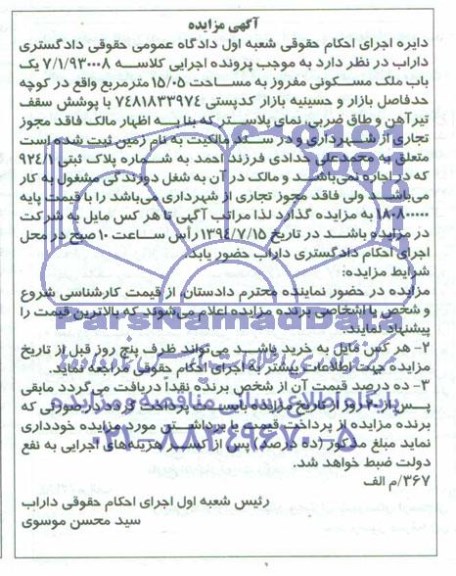 آگهی مزایده
دایره اجرای احکام حقوقی شعبه اول دادگاه عمومی حقوقی دادگستری
داراب در نظر دارد به موجب پرونده اجرایی کلاسه ۷/۱/۹۳۰۰۰۸ یک
باب ملک مسکونی مفروز به مساحت ۱۵/۰۵ مترمربع واقع در کوچه
حدفاصل بازار و حسینیه بازار کدپستی ۷۴۸۱۸۳۳۹۷۴ با پوشش سقف
تیرآهن و طاق ضربی، نمای پلاستر که بنا به اظهار مالک فاقد مجوز
تجاری از شهرداری و در سند مالکیت به نام زمین ثبت شده است
متعلق به محمدعلی حدادی فرزند احمد به شماره پلاک ثبتی ۹۲۴/۱
که در اجاره نمی‌باشد و مالک در آن به شغل دوزندگی مشغول به کار
می‌باشد ولی فاقد مجوز تجاری از شهرداری می‌باشد را با قیمت پایه
به مزایده گذارد لذا مراتب آگهی تا هر کس مایل به شرکت
در مزایده باشد در تاریخ ۱۳۹۴/۷/۱۵ رأس ساعت ۱۰ صبح در محل
اجرای احکام دادگستری داراب حضور یابد.
شرایط مزایده:
مزایده در حضور نماینده محترم دادستان، از قیمت کارشناسی شروع
و شخص یا اشخاصی برنده مزایده اعلام می‌شوند که بالاترین قیمت را
پیشنهاد نمایند.
۲- هر کس مایل به خرید باشد می‌تواند ظرف پنج روز قبل از تاریخ
مزایده جهت اطلاعات بیشتر به اجرای احکام حقوقی مراجعه نماید.
۳- ده درصد قیمت آن از شخص برنده نقداً دریافت می‌گردد مابقی
پس از روز از تاریخ مزایده بایستی پرداخت گردد در صورتی که
برنده مزایده از پرداخت قیمت یا برداشتن مورد مزایده خودداری
نماید مبلغ مذکور (ده درصد) پس از کسر هزینه‌های اجرایی به نفع
دولت ضبط خواهد شد.
۳۶۷/م الف
رئیس شعبه اول اجرای احکام حقوقی داراب
سید محسن موسوی
ParsNamadData
پایگاه اطلاع رسانی مناقصه و مزایده
۰۲۱-۸۸۳۴۹۶۷۰-۵